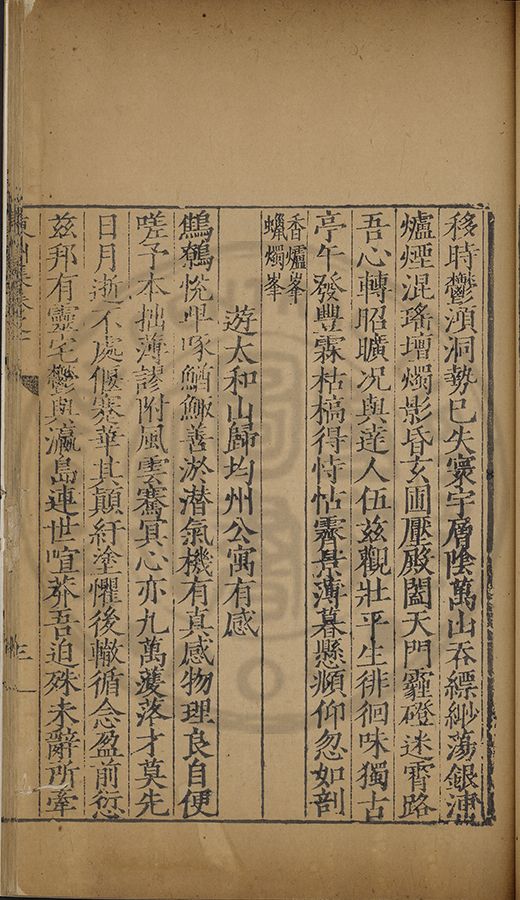 移時鬱澒洞勢已失寰宇層陰萬山吞縹緲蕩銀浦
爐煙混瑤壇燭影昏玄圃壓殿闔天門霾磴迷霄路
吾心轉昭曠况與達人伍茲觀壯平生徘徊味獨古
亭午發豐霖枯槁得恃怙霽景薄暮懸頫仰忽如剖
香爐峯
蠟燭峯
遊太和山歸均州公寓有感
悅卑啄鰌善淤潜氣機有真感物理良自便
嗟予本拙薄謬附風雲騫冥心亦九萬濩落才莫先
日月逝不處偃蹇華其顛紆塗懼後轍循念盈前愆
茲邦有靈宅鬱與瀛島連世喧莽吾迫殊未辭所牽
三